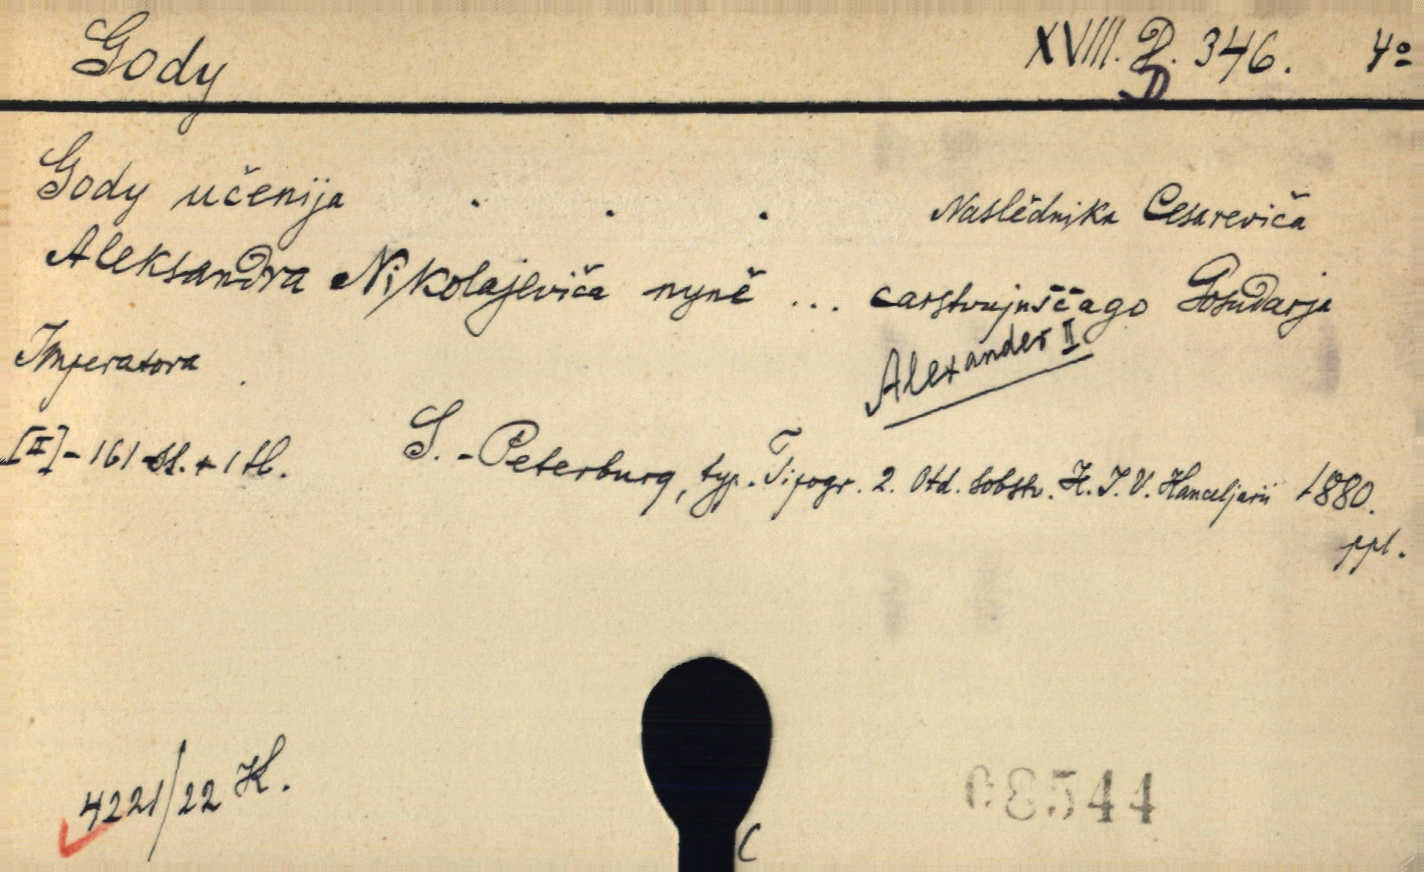 Gody XVIII. D. 346. 4º
D
Gody učenija . . . Naslědnika Cesareviča
Aleksandra Nikolajeviča nyně ... carstvujuščago Gosudarja
Imperatora.
Alexander II
[II]-161 st. + 1 tl. S.-Peterburg, typ. Tipogr. 2. Otd. sobstv. H. I. V. Hanceljarii 1880.
ppl.
4221/22 K.
08544
C